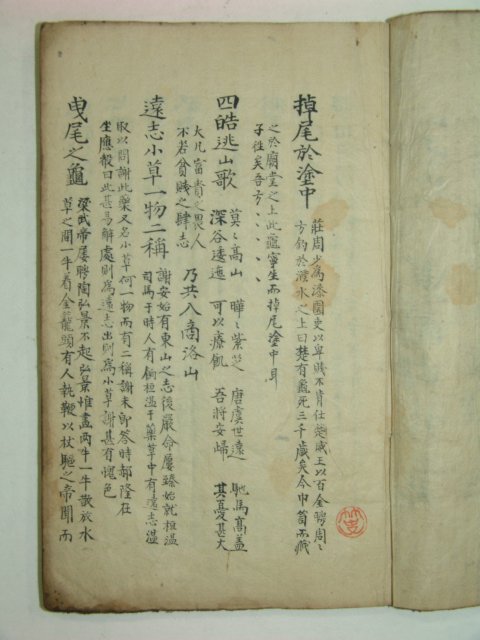 掉尾於塗中
莊周少爲漆園吏以卑賤不肯仕楚威王以百金聘周〻
方釣於濮水之上曰楚有龜死三千歲矣今巾笥而藏
之於廟堂之上此龜寧生而掉尾塗中耳
子徃矣吾方〻〻〻〻〻
四皓逃山歌
莫〻高山 曄〻紫芝 唐虞世遠 馳馬高盖
深谷逶迤 可以療飢 吾將安歸 其憂甚大
大凡富貴之畏人
不若貧賤之肆志
乃共入商洛山
遠志小草一物二稱
謝安始有東山之志後嚴命屢臻始就桓溫
司馬于時人有餉桓溫于藥草中有遠志溫
取以問謝此藥又名小草何一物而有二稱謝未卽答時郝隆在
坐應聲曰此甚易解處則爲遠志出則爲小草謝甚有愧色
曳尾之龜
梁武帝屢聘陶弘景不起弘景惟畫两牛一牛散放水
草之間一牛着金籠頭有人執鞭以杖驅之帝聞而